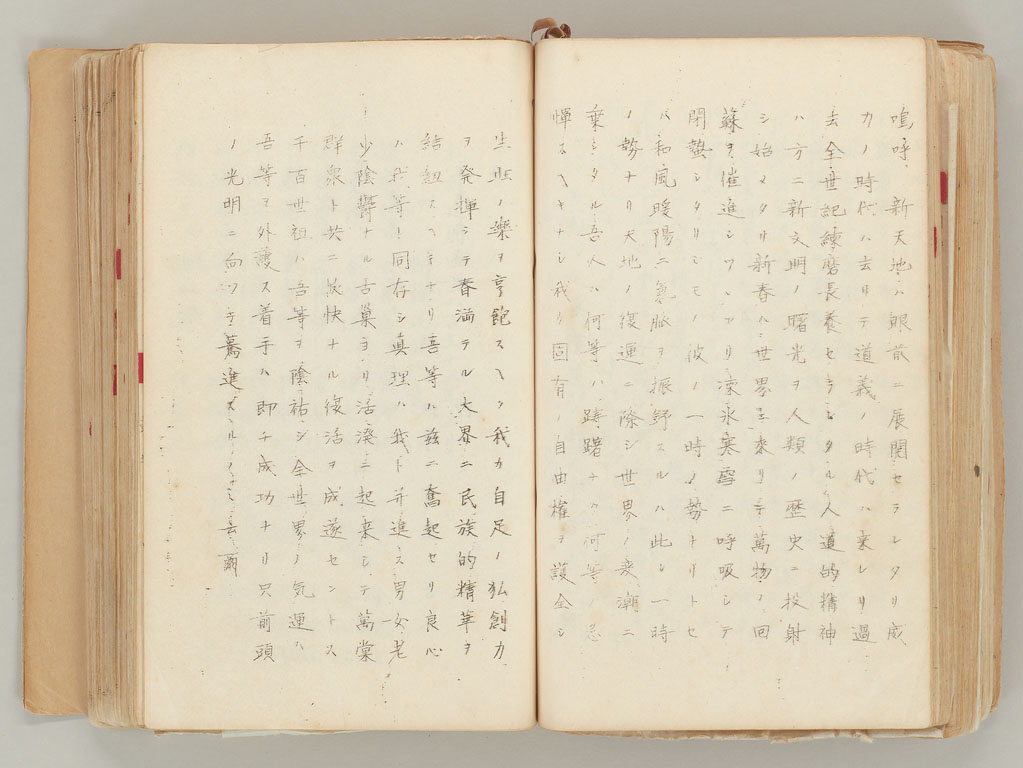 嗚呼新天地ハ眼前ニ展開セラレタリ威
力ノ時代ハ去リテ道義ノ時代ハ来レリ過
去全世紀練磨長養セラレタル人道的精神
ハ方ニ新文明ノ曙光ヲ人類ノ歴史ニ投射
シ始メタリ新春ハ世界ニ来リテ萬物ノ回
蘇ヲ催進シツヽアリ凍氷寒雪ニ呼吸シテ
閉蟄シタリシモノ彼ノ一時ノ勢ナリトセ
ハ和風暖陽ニ氣脈ヲ振野スルハ此レ一時
ノ勢ナリ天地ノ復運ニ際シ世界ノ変潮ニ
乗シタル吾人ハ何等ハ躊躇ナク何等ノ忌
憚スヘキナシ我カ固有ノ自由権ヲ護全シ
生旺ノ樂ヲ享飽スヘク我カ自足ノ独創力
ヲ発揮シテ春満テル大界ニ民族的精華ヲ
結紐スヘキナリ吾等ハ茲ニ奮起セリ良心
ハ我等ト同存シ真理ハ我ト并進ス男女老
少陰欝ナル古巣ヨリ活溌ニ起来シテ萬棠
群衆ト共ニ欣快ナル復活ヲ成遂セントス
千百世祖ハ吾等ヲ陰祐シ全世界ノ気運ハ
吾等ヲ外護ス着手ハ即チ成功ナリ只前頭
ノ光明ニ向ツキ驀進スルノミ云爾